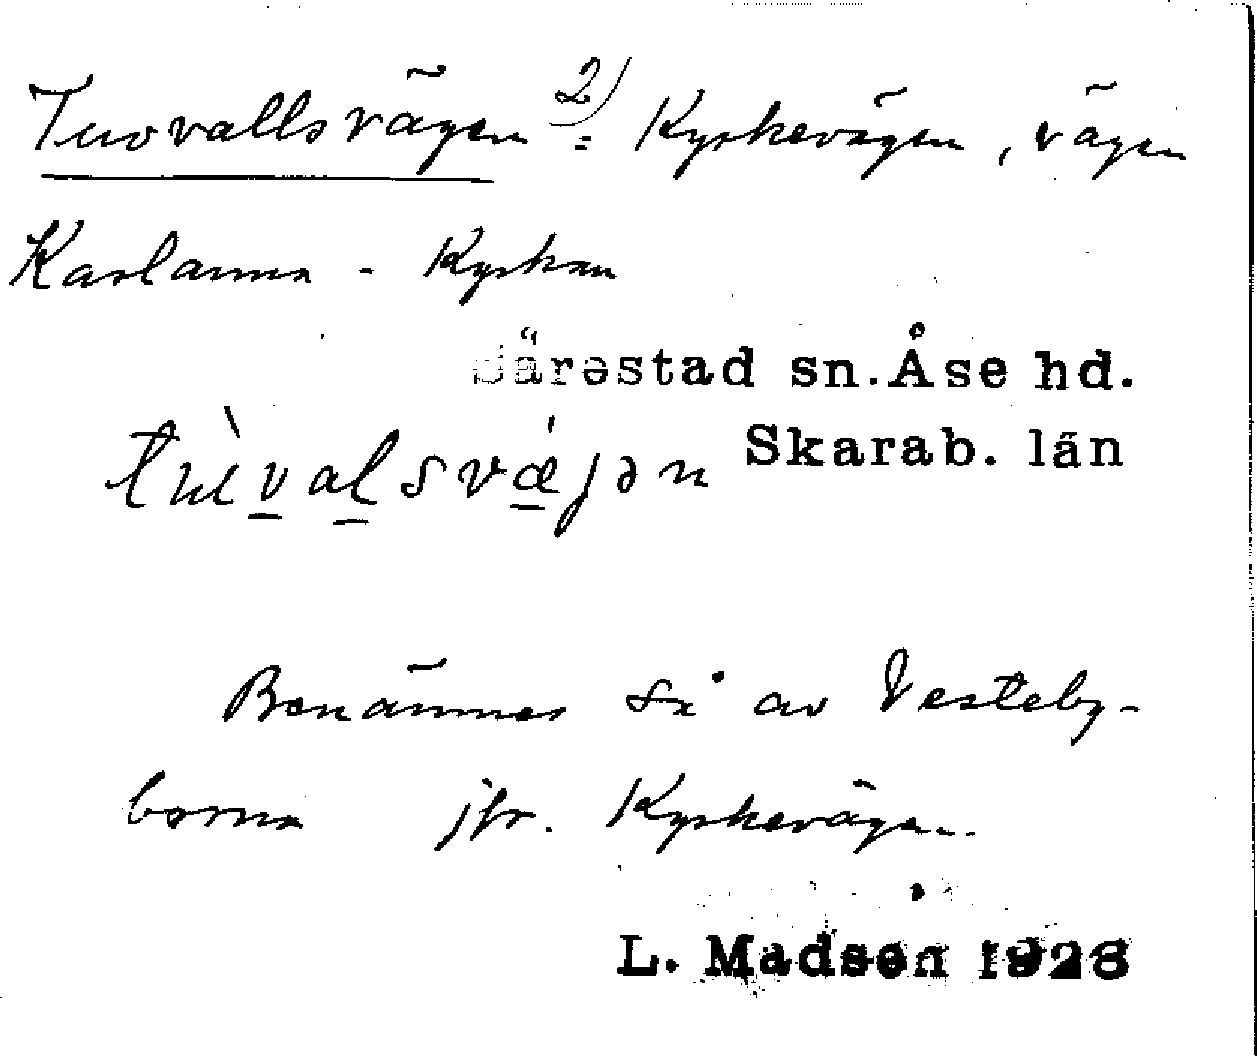 Tuovallsvägen 2) = Kyrkevägen, vägen
Karlanna - Kyrkan
Särestad sn. Åse hd.
Skarab. län
Benämnes så av Västeby-
borna jfr. Kyrkevägen.
L. Madsen 1928